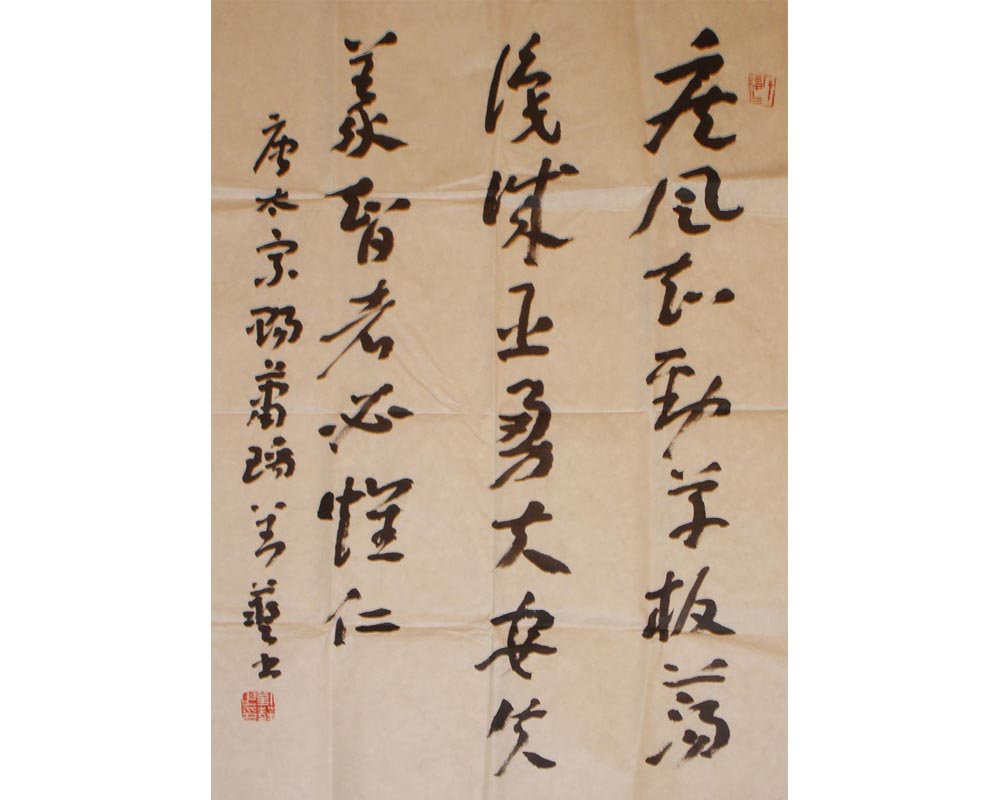 疾風知勁草板蕩
識誠臣勇夫安
義智者必懷仁
唐太宗賜蕭瑀 藝書